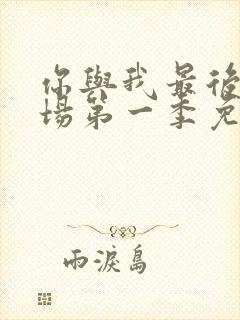 你與我最後
場第一季免
雨淚島